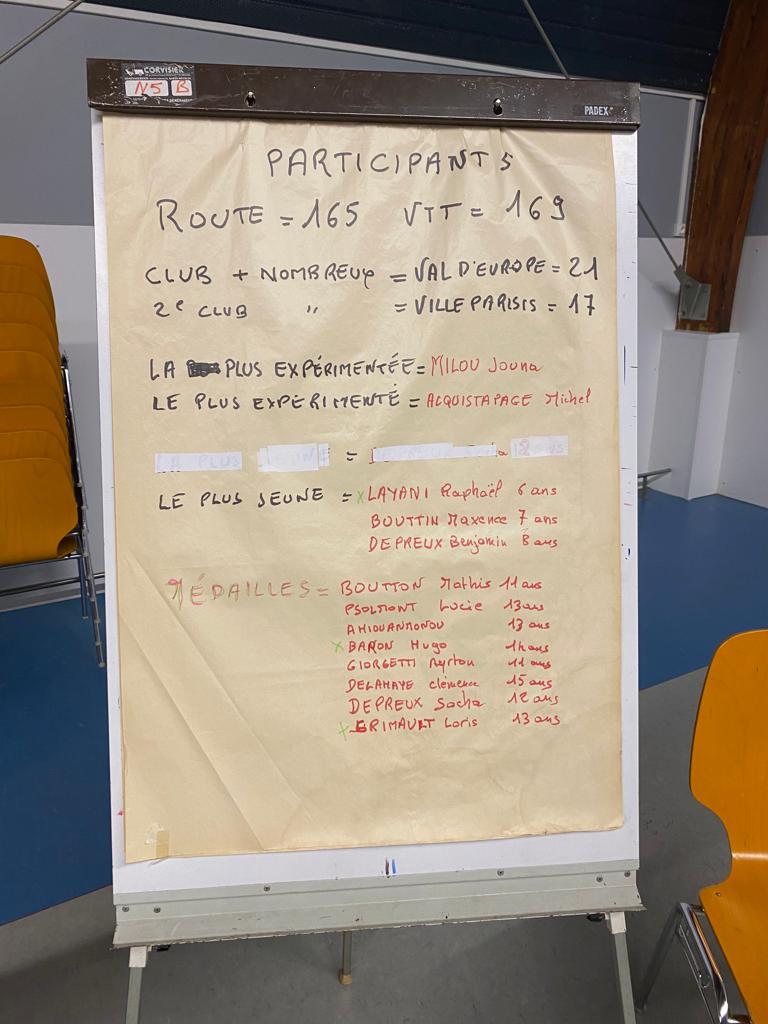 CORVISIER
N5 B
PADEX
PARTICIPANTS
ROUTE = 165 VTT = 169
CLUB + NOMBREUX = VAL D'EUROPE = 21
2e CLUB " = VILLEPARISIS = 17
LA PLUS EXPÉRIMENTÉE = MILOU Jouna
LE PLUS EXPÉRIMENTÉ = ALQUISTAPAGE Michel
LA PLUS JEUNE =
LE PLUS JEUNE = x LAYANI Raphaël 6 ans
BOUTTIN Maxence 7 ans
DEPREUX Benjamin 8 ans
MÉDAILLES = BOUTTON Mathis 11 ans
PSOLMONT Lucie 13 ans
AHIOUANMONOU 13 ans
x BARON Hugo 14 ans
GIORGETTI Ayrton 11 ans
DELAHAYE Clémence 15 ans
DEPREUX Sacha 12 ans
x GRIMAULT Loris 13 ans